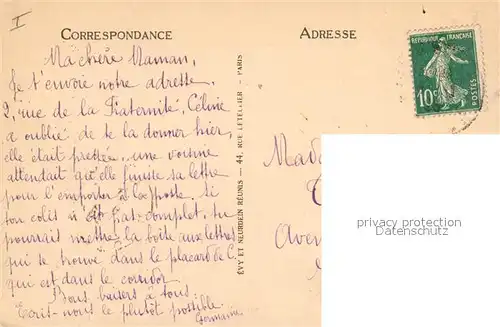 I
CORRESPONDANCE
ADRESSE
Ma chère Maman,
Je t'envoie notre adresse.
2, rue de la Fraternité, Céline
a oublié de te la donner hier,
elle était pressée, une voisine
attendait qu'elle finisse sa lettre
pour l'emporter à la poste. Si
ton colis n'est pas complet, tu
pourrais mettre la boite aux lettres
qui se trouve dans le placard de C.
qui est dans le corridor.
Bons baisers à tous.
Ecris-nous le plutôt possible.
Germaine
ÉVY ET NEURDEIN RÉUNIS — 44, RUE LETELLIER — PARIS
RÉPUBLIQUE FRANÇAISE
10c
POSTES
Mada
Aven
privacy protection